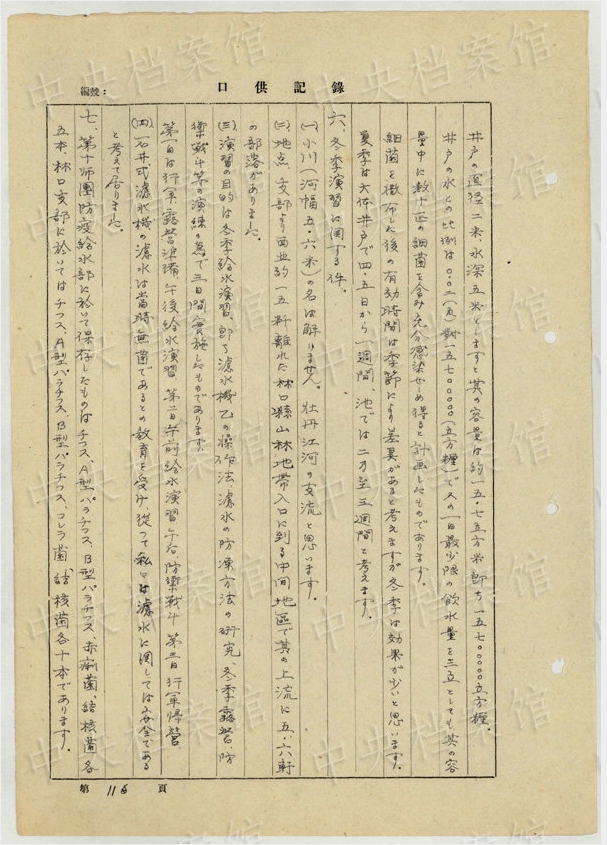 口供記錄
編號：
井戸の直径二米、水深五米としますと其の容量は約一五・七五方米即ち一五七〇〇〇〇〇立方糎。
井戸の水との比例は〇.〇二(瓦)對一五七〇〇〇〇〇(立方糎)で人の一日最少限の飲水量を三立としても其の容
量中に数十匹の細菌を含み充分感染せしめ得ると計画したものであります。
細菌を撒布した後の有効時間は季節により差異があると考えますが冬季は効果が少いと思います。
夏季は大体井戸で四、五日から一週間、池では二乃至三週間と考えます。
六、冬季演習に関する件。
(一)小川(河幅五・六米)の名は解りません。牡丹江河の支流と思います。
(二)地点、支部より西北約一五粁離れた林口縣山林地帯入口に到る中間地區で其の上流に五、六軒
の部落がありました。
(三)演習の目的は冬季給水演習、即ち濾水機乙の操作法、濾水の防凍方法の研究、冬季露営、防
禦戦斗等の演練の為で三日間實施したものであります。
第一日は行軍、露営準備、午後給水演習、第二日午前給水演習、午后防禦戦斗、第三日行軍帰營
(四)石井式濾水機の濾水は當時無菌であるとの教育を受け、従って私は濾水に関しては安全である
と考えて居りました。
七、第十師團防疫給水部に於いて保存したものはチフス、A型パラチフス、B型パラチフス、赤痢菌、結核菌各
五本、林口支部に於いてはチフス、A型パラチフス、B型パラチフス、コレラ菌、結核菌各十本であります。
第 116 頁
中央档案馆